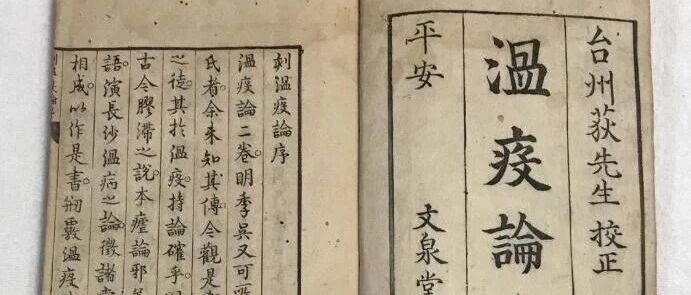 台州荻先生 校正
温疫論
平安 文泉堂
刺温疫論序
温疫論二卷明季吳又可
氏者余未知其傳今觀是
之徒其於温疫持論確乎
古今膠滞之説本瘧論邪
語演長沙温病之論徵諸
相成以作是書刱覈温疫